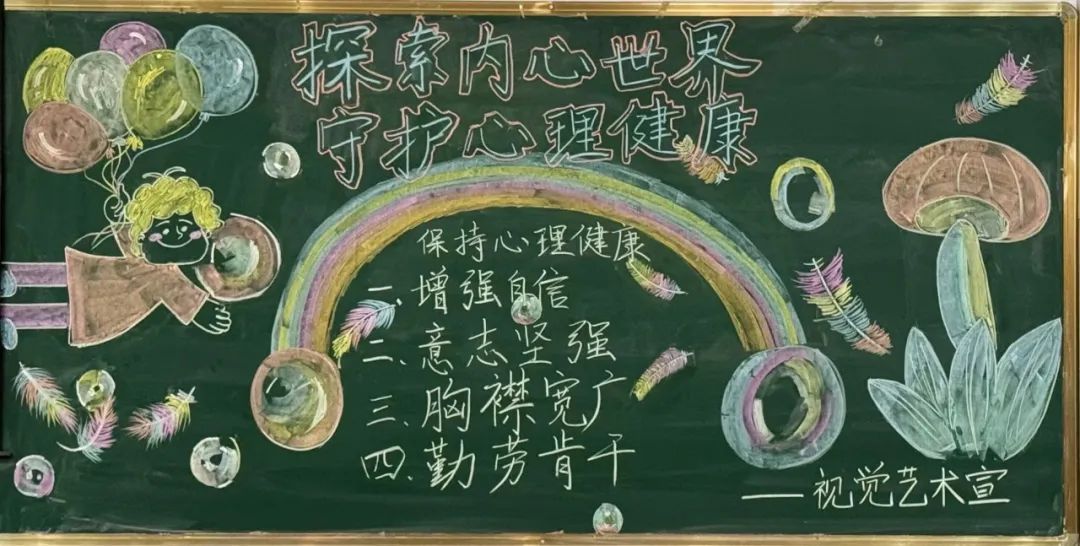 探索内心世界
守护心理健康
保持心理健康
一、增强自信
二、意志坚强
三、胸襟宽广
四、勤劳肯干
——视觉艺术宣